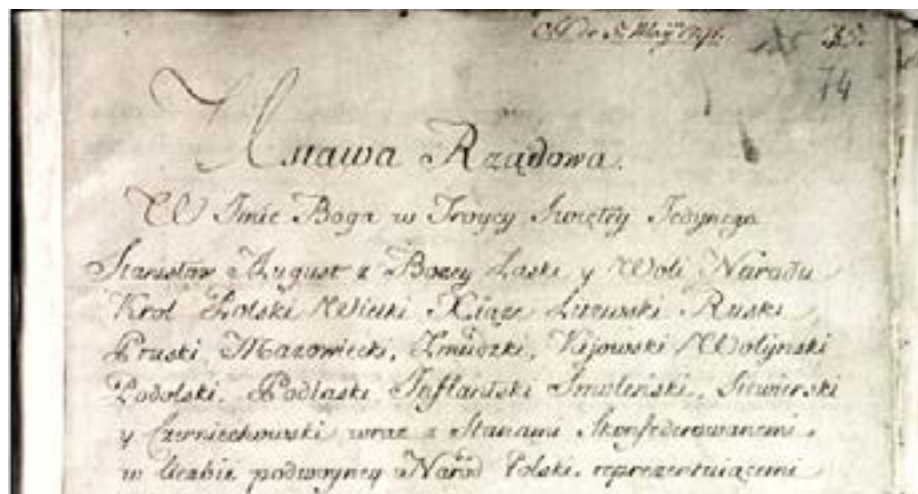 35.
74
Ustawa Rządowa.
W Imie Boga w Troycy Swiętey Jedynego
Stanisław August z Bozey Łaski y Woli Narodu
Krol Polski Wielki Xiąże Litewski Ruski
Pruski, Mazowiecki, Zmudzki, Kijowski Wołynski
Podolski, Podlaski Inflantski Smoleński, Siewierski
y Czerniechowski wraz z Stanami Skonfederowanemi
w liczbie podwoyney Naród Polski reprezentuiącemi